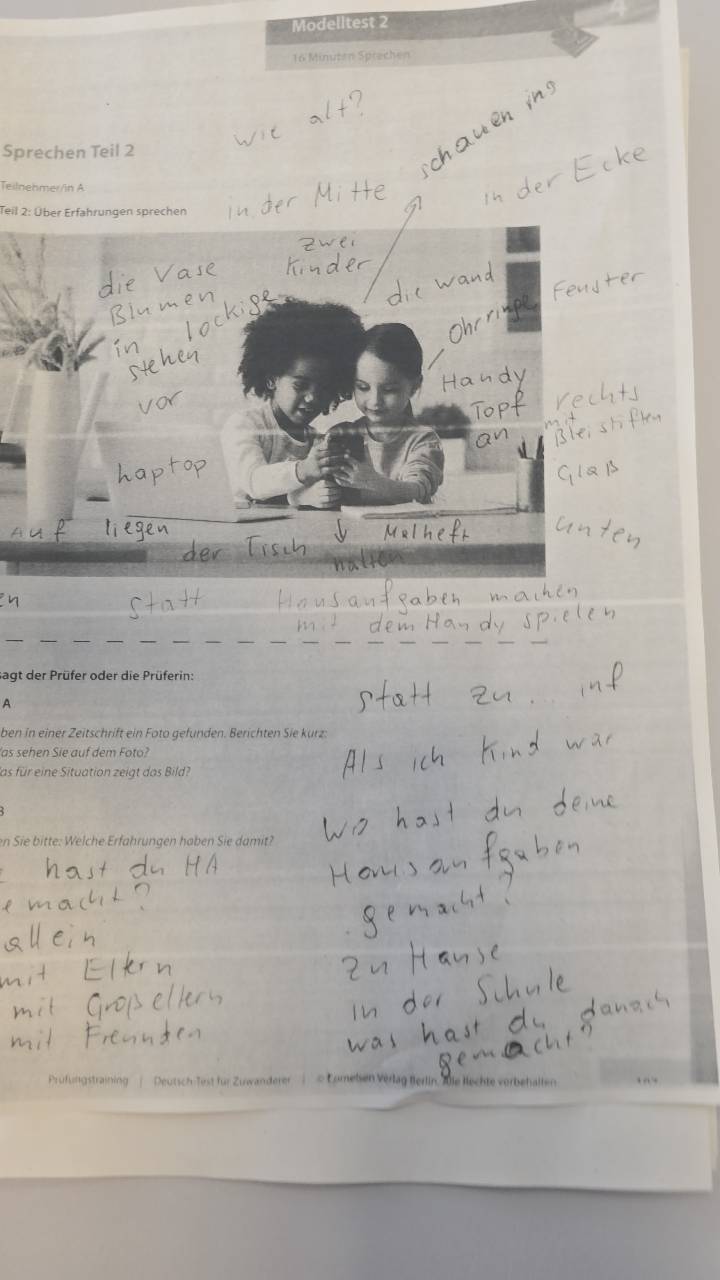 Modelltest 2
16 Minuten Sprechen
wie alt?
schauen ins
Sprechen Teil 2
Teilnehmer/in A
in der Mitte
in der Ecke
Teil 2: Über Erfahrungen sprechen
zwei
Kinder
die Vase
Blumen
in
stehen
vor
lockige
die Wand
Fenster
Ohrringe
Handy
Topf
an
rechts
mit
Bleistiften
Glaß
Laptop
unten
Auf
liegen
der Tisch
Malheft
halten
en
statt
Hausaufgaben machen
mit dem Handy spielen
sagt der Prüfer oder die Prüferin:
A
statt zu... inf
ben in einer Zeitschrift ein Foto gefunden. Berichten Sie kurz:
as sehen Sie auf dem Foto?
as für eine Situation zeigt das Bild?
Als ich Kind war
B
en Sie bitte: Welche Erfahrungen haben Sie damit?
wo hast du deine
Hausaufgaben
gemacht?
hast du HA
emacht?
allein
mit Eltern
mit Großeltern
mit Freunden
zu Hause
in der Schule
was hast du danach
gemacht?
Prüfungstraining | Deutsch-Test für Zuwanderer | © Cornelsen Verlag Berlin. Alle Rechte vorbehalten